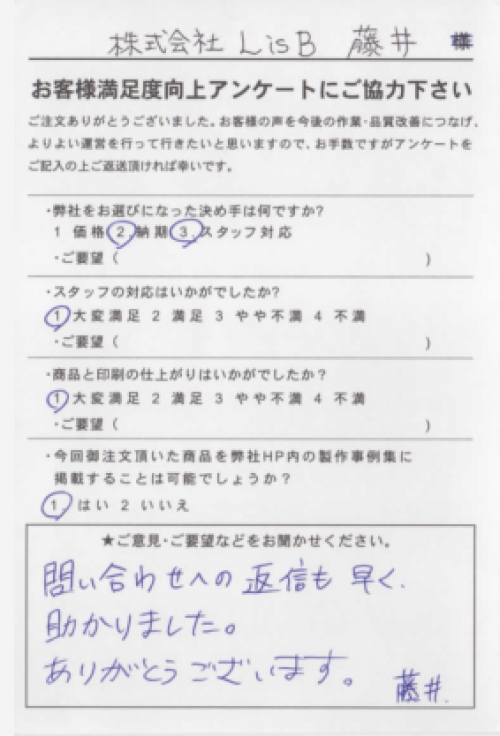 株式会社 LisB 藤井 様
お客様満足度向上アンケートにご協力下さい
ご注文ありがとうございました。お客様の声を今後の作業・品質改善につなげ、
よりよい運営を行って行きたいと思いますので、お手数ですがアンケートを
ご記入の上ご返送頂ければ幸いです。
・弊社をお選びになった決め手は何ですか?
1 価格 2.納期 3.スタッフ対応
・ご要望 ( )
・スタッフの対応はいかがでしたか?
1 大変満足 2 満足 3 やや不満 4 不満
・ご要望 ( )
・商品と印刷の仕上がりはいかがでしたか?
1 大変満足 2 満足 3 やや不満 4 不満
・ご要望 ( )
・今回御注文頂いた商品を弊社HP内の製作事例集に
掲載することは可能でしょうか?
1. はい 2 いいえ
★ご意見・ご要望などをお聞かせください。
問い合わせへの返信も早く、
助かりました。
ありがとうございます。
藤井.